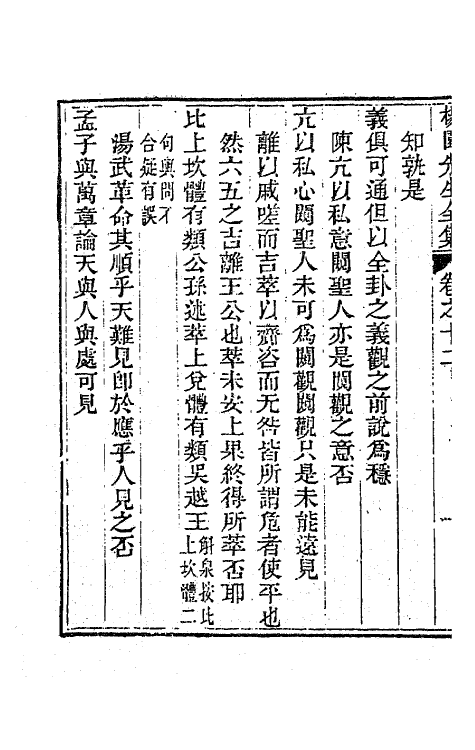 楊園先生全集 卷之十二
知孰是
義俱可通但以全卦之義觀之前說爲穩
陳亢以私意闚聖人亦是闚觀之意否
亢以私心闚聖人未可爲闚觀闚觀只是未能遠見
離以戚嗟而吉萃以齎咨而无咎皆所謂危者使平也
然六五之吉離王公也萃未安上果終得所萃否耶
比上坎體有類公孫述萃上兌體有類吳越王斛泉按比上坎體二
句與問不合疑有誤
湯武革命其順乎天難見卽於應乎人見之否
孟子與萬章論天與人與處可見